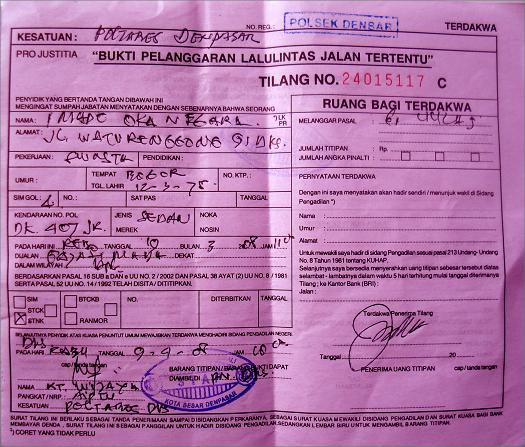 NO. REG.: POLSEK DENBAR TERDAKWA
KESATUAN : POLTABES DENPASAR
PRO JUSTITIA "BUKTI PELANGGARAN LALULINTAS JALAN TERTENTU"
TILANG NO. 24015117 C
PENYIDIK YANG BERTANDA TANGAN DIBAWAH INI
MENGINGAT SUMPAH JABATAN MENYATAKAN DENGAN SEBENARNYA BAHWA SEORANG
NAMA : I MADE OKA NEGARA LK
PR
ALAMAT : JL. WATURENGGONG
PEKERJAAN : SWASTA PENDIDIKAN :
UMUR : TEMPAT BOGOR NO. KTP. :
TGL. LAHIR 12-3-75
SIM GOL : SAT PAS TANGGAL
KENDARAAN NO. POL JENIS SEDAN NOKA
DK. 407 JK. MEREK NOSIN
PADA HARI INI TANGGAL 10 BULAN 3 08 JAM
DIJALAN
DALAM WILAYAH
BERDASARKAN PASAL 16 SUB a DAN e UU NO. 2 / 2002 DAN PASAL 38 AYAT (2) UU NO. 8 / 1981
SERTA PASAL 52 UU NO. 14 / 1992 TELAH DISITA / DITITIPKAN.
SIM BTCKB NO. DITERBITKAN TANGGAL
STCK BUKU
STNK RANMOR
SELANJUTNYA PENYIDIK ATAS KUASA PENUNTUT UMUM MEWAJIBKAN TERDAKWA MENGHADIRI SIDANG PENGADILAN NEGERI
DPS
PADA HARI RABU TANGGAL 9-4-08 JAM
cap / tanda tangan BARANG TITIPAN / BARANG BUKTI DAPAT
DIAMBIL DI PN. DPS
NAMA KT. WIJAYA
PANGKAT / NRP. AIPTU
KESATUAN POLTABES DPS
KOTA BESAR DENPASAR
RUANG BAGI TERDAKWA
MELANGGAR PASAL : 61
JUMLAH TITIPAN : Rp.
JUMLAH ANGKA PINALTI :
PERNYATAAN TERDAKWA
Dengan ini saya menyatakan akan hadir sendiri / menunjuk wakil di Sidang
Pengadilan *)
Nama :
Umur :
Alamat :
Untuk mewakili saya hadir di sidang Pengadilan sesuai pasal 213 Undang-Undang
No. 8 Tahun 1981 tentang KUHAP.
Selanjutnya saya bersedia menyerahkan uang titipan sebesar tersebut diatas
selambat - lambatnya dalam waktu 5 hari terhitung mulai tanggal diterimanya
Tilang ; ke Kantor Bank (BRI) :
Jalan :
Terdakwa Penerima Tilang
Tanggal 20
cap / tanda tangan PENERIMA UANG TITIPAN cap / tanda tangan
SURAT TILANG INI BERLAKU SEBAGAI TANDA PENERIMAAN SAMPAI DISIDANGKAN PERKARANYA, SEBAGAI SURAT KUASA MEWAKILI DISIDANG PENGADILAN DAN SEBAGAI SURAT KUASA BAGI BANK
MEMBAYAR DENDA, SURAT TILANG INI SEBAGAI PANGGILAN UNTUK HADIR DISIDANG PENGADILAN, SEDANGKAN LEMBAR BIRU UNTUK MENGAMBIL BARANG TITIPAN.
*) CORET YANG TIDAK PERLU